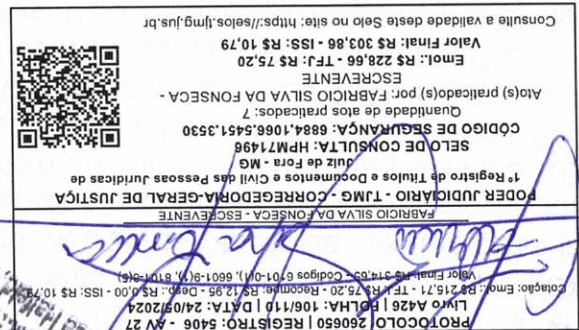 PROTOCOLO: 260650 | REGISTRO: 5406 - AV 27
Livro A426 | FOLHA: 106/110 | DATA: 24/05/2024
Cotação: Emol: R$ 215,71 - TFJ: R$ 75,20 - Recompe: R$ 12,95 - Desp: R$ 0,00 - ISS: R$ 10,79
Valor Final: R$ 314,65 - Códigos 6101-0(1), 6601-9(1), 8101-8(6)
FABRICIO SILVA DA FONSECA - ESCREVENTE
PODER JUDICIÁRIO - TJMG - CORREGEDORIA-GERAL DE JUSTIÇA
1º Registro de Títulos e Documentos e Civil das Pessoas Jurídicas de
Juiz de Fora - MG
SELO DE CONSULTA: HPM71496
CÓDIGO DE SEGURANÇA: 6884.1066.5451.3530
Quantidade de atos praticados: 7
Ato(s) praticado(s) por: FABRICIO SILVA DA FONSECA -
ESCREVENTE
Emol.: R$ 228,66 - TFJ: R$ 75,20
Valor Final: R$ 303,86 - ISS: R$ 10,79
Consulte a validade deste Selo no site: https://selos.tjmg.jus.br